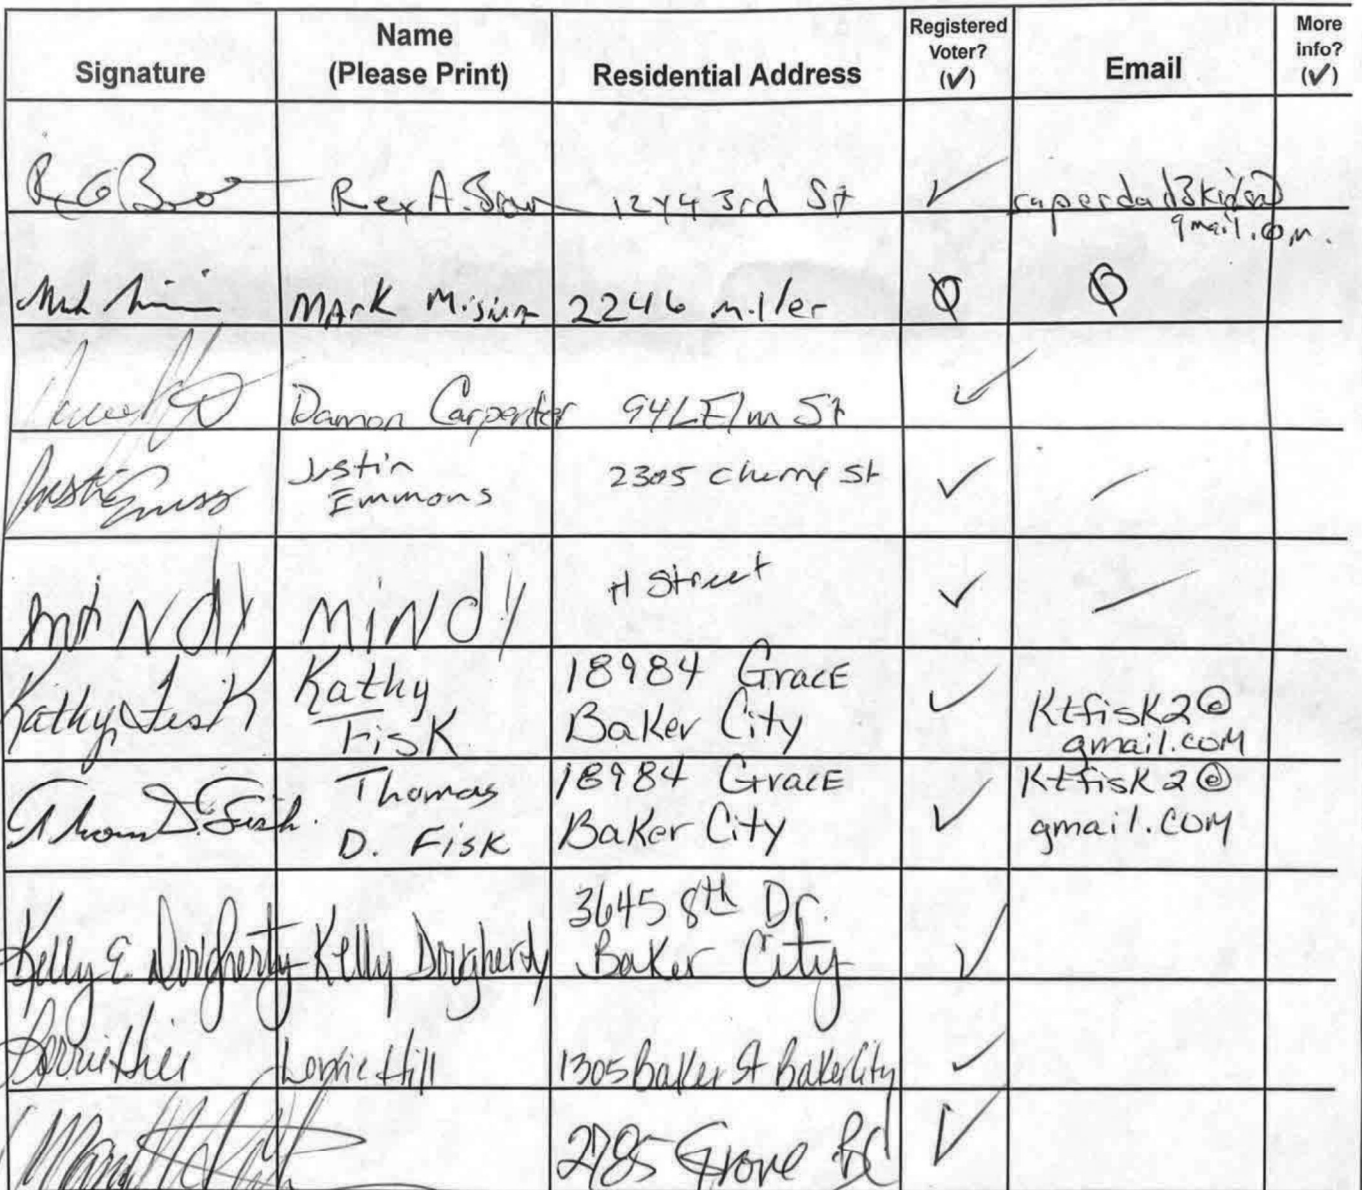 Signature Name (Please Print) Residential Address Registered Voter? (✓) Email More info? (✓)
Rex A. 3rd St ✓
gmail.com
Mark 2246 Miller
Damon Carpenter Elm St ✓
Justin Emmons 2305 Cherry St ✓
MiNdy MiNdy H Street ✓
Kathy Fisk Kathy Fisk 18984 GracE Baker City ✓ Ktfisk2@
gmail.com
Thomas D. Fisk 18984 GracE Baker City ✓ Ktfisk2@
gmail.com
Kelly E. Dougherty Kelly Dougherty 3645 8th Dr. Baker City ✓
Lorrie Hill Lorrie Hill 1305 Baker St Baker City ✓
2785 Grove BC ✓